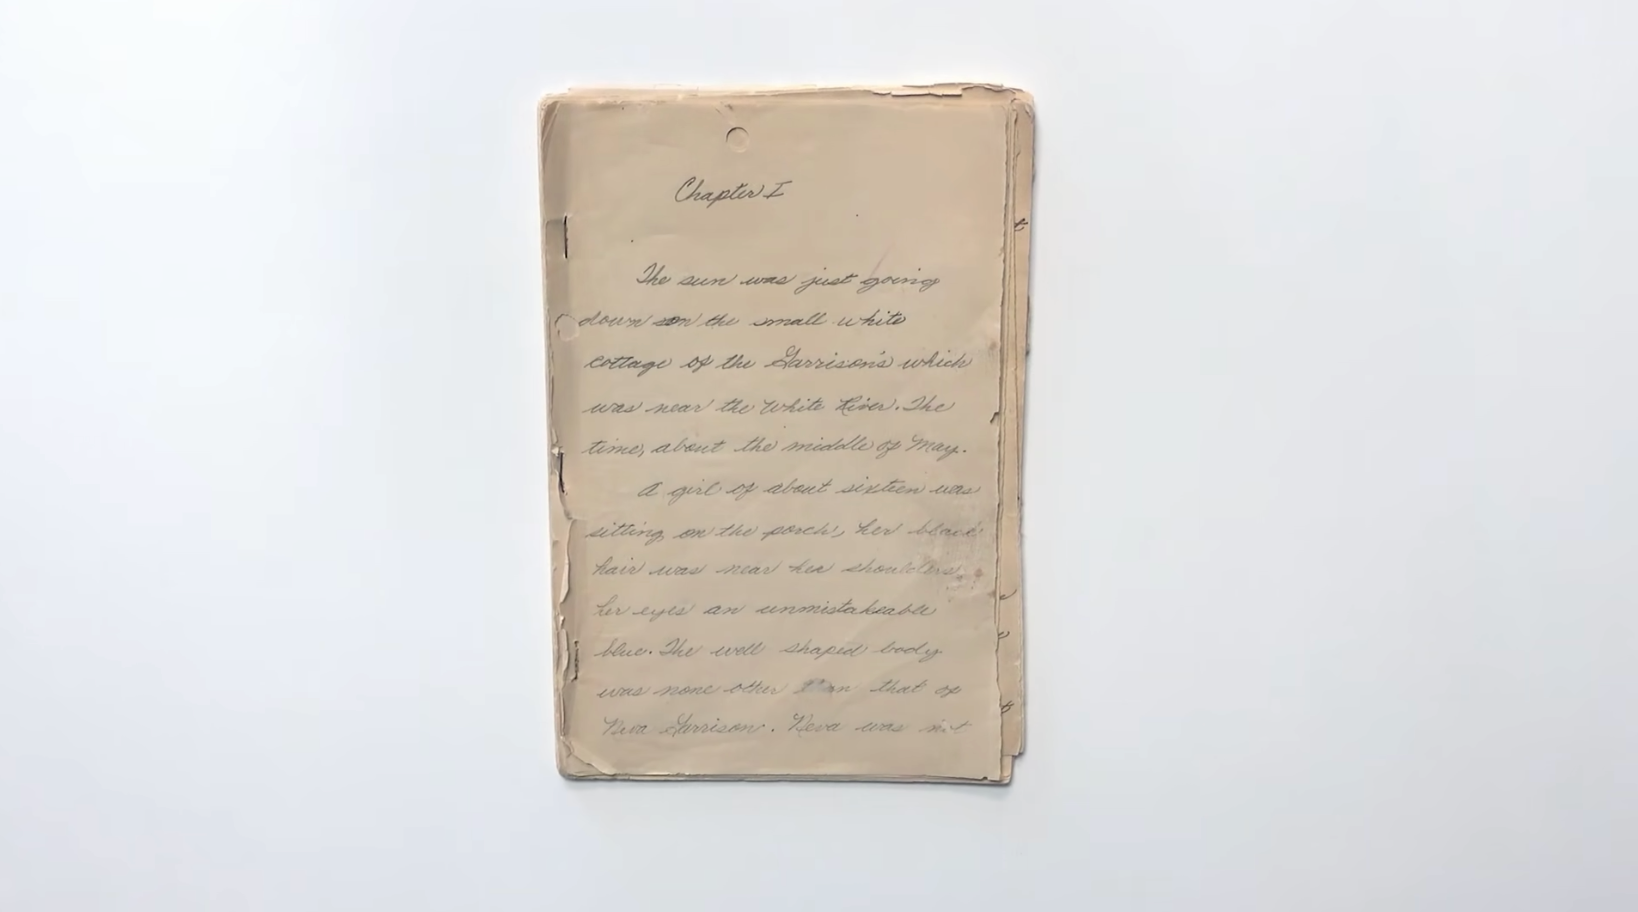 Chapter I
The sun was just going
down on the small white
cottage of the Garrison's which
was near the White River. The
time, about the middle of May.
A girl of about sixteen was
sitting on the porch, her black
hair was near her shoulders
her eyes an unmistakeable
blue. The well shaped body
was none other than that of
Neva Garrison. Neva was not